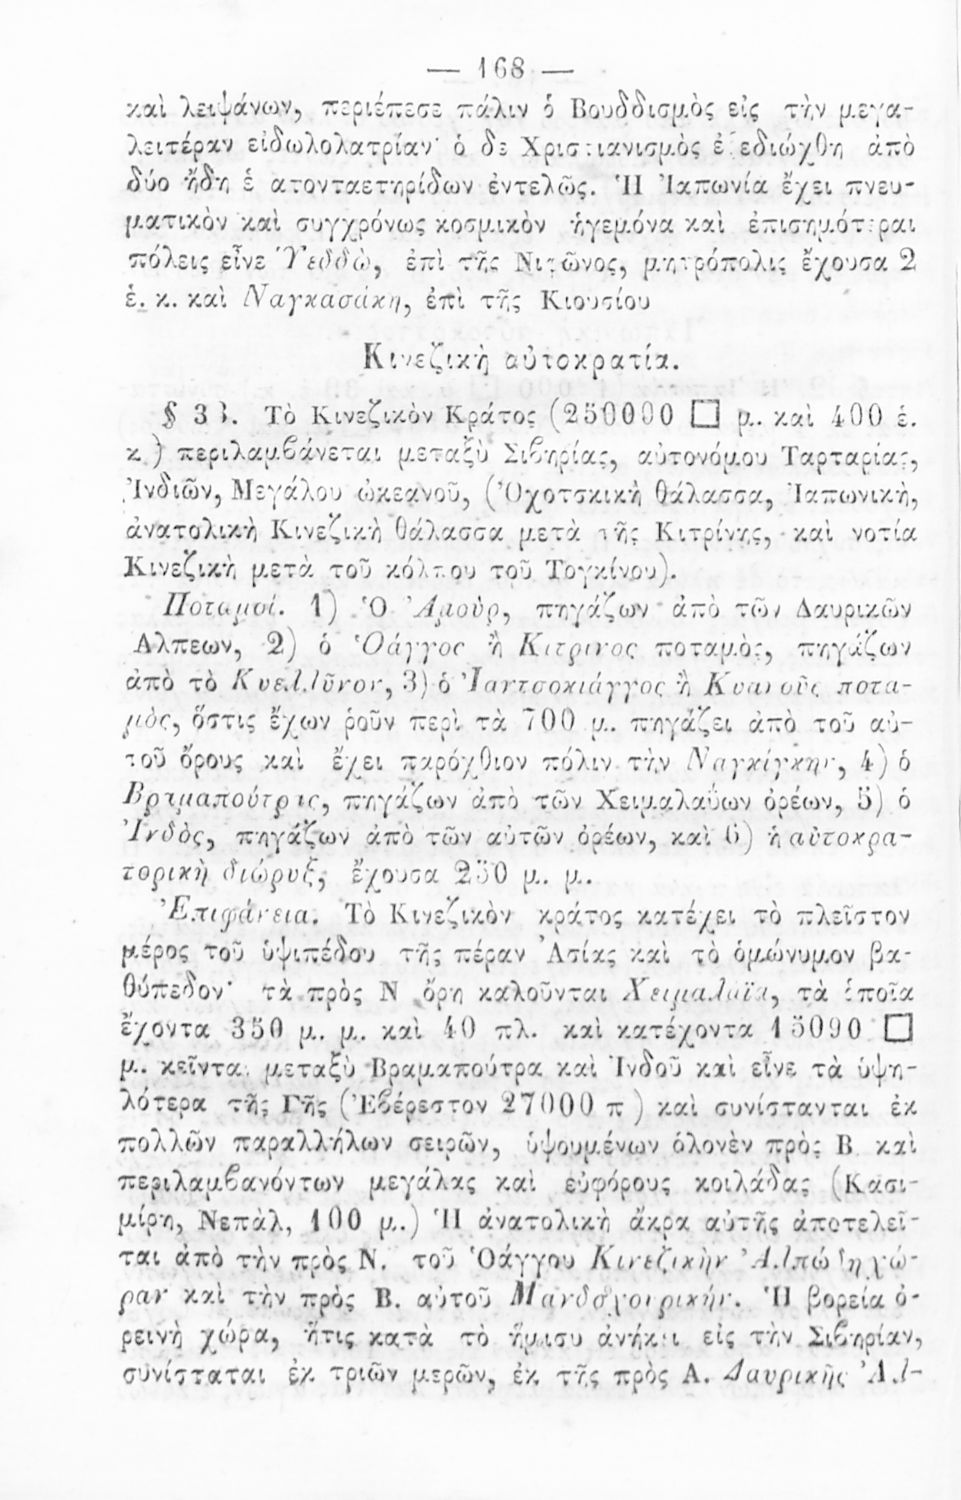 — 168 —
καὶ λειψάνων, περιέπεσε πάλιν ὁ Βουδδισμὸς εἰς τὴν μεγα-
λειτέραν εἰδωλολατρίαν· ὁ δὲ Χριστιανισμὸς ἐξεδιώχθη ἀπὸ
δύο ἤδη ἑκατονταετηρίδων ἐντελῶς. Ἡ Ἰαπωνία ἔχει πνευ-
ματικὸν καὶ συγχρόνως κοσμικὸν ἡγεμόνα καὶ ἐπισημότεραι
πόλεις εἶνε Ὑεδδὼ, ἐπὶ τῆς Νιπῶνος, μητρόπολις ἔχουσα 2
ἑ. κ. καὶ Ναγκασάκη, ἐπὶ τῆς Κιουσίου
Κινεζικὴ αὐτοκρατία.
§ 33. Τὸ Κινεζικὸν Κράτος (250000 □ μ. καὶ 400 ἑ.
κ.) περιλαμβάνεται μεταξὺ Σιβηρίας, αὐτονόμου Ταρταρίας,
Ἰνδιῶν, Μεγάλου ὠκεανοῦ, (Ὀχοτσκικὴ θάλασσα, Ἰαπωνικὴ,
ἀνατολικὴ Κινεζικὴ θάλασσα μετὰ τῆς Κιτρίνης, καὶ νοτία
Κινεζικὴ μετὰ τοῦ κόλπου τοῦ Τογκίνου).
Ποταμοί. 1) Ὁ Ἀμοὺρ, πηγάζων ἀπὸ τῶν Δαυρικῶν
Ἄλπεων, 2) ὁ Ὁάγγος ἢ Κιτρινος ποταμὸς, πηγάζων
ἀπὸ τὸ Κυελλῦνον, 3) ὁ Ἰαντσοκιάγγος ἢ Κυανοῦς ποτα-
μὸς, ὅστις ἔχων ῥοῦν περὶ τὰ 700 μ. πηγάζει ἀπὸ τοῦ αὐ-
τοῦ ὄρους καὶ ἔχει παρόχθιον πόλιν τὴν Ναγκίγκην, 4) ὁ
Βρεμαπούτρις, πηγάζων ἀπὸ τῶν Χειμαλαΰων ὀρέων, 5) ὁ
Ἰνδὸς, πηγάζων ἀπὸ τῶν αὐτῶν ὀρέων, καὶ 6) ἡ αὐτοκρα-
τορικὴ διώρυξ, ἔχουσα 250 μ. μ.
Ἐπιφάνεια. Τὸ Κινεζικὸν κράτος κατέχει τὸ πλεῖστον
μέρος τοῦ ὑψιπέδου τῆς πέραν Ἀσίας καὶ τὸ ὁμώνυμον βα-
θύπεδον· τὰ πρὸς Ν ὄρη καλοῦνται Χειμαλαΐα, τὰ ὁποῖα
ἔχοντα 350 μ. μ. καὶ 40 πλ. καὶ κατέχοντα 15000 □
μ. κεῖνται μεταξὺ Βραμαπούτρα καὶ Ἰνδοῦ καὶ εἶνε τὰ ὑψη-
λότερα τῆς Γῆς (Ἐβέρεστον 27000 π) καὶ συνίστανται ἐκ
πολλῶν παραλλήλων σειρῶν, ὑψουμένων ὁλονὲν πρὸς Β καὶ
περιλαμβανόντων μεγάλας καὶ εὐφόρους κοιλάδας (Κασι-
μίρη, Νεπὰλ, 100 μ.) Ἡ ἀνατολικὴ ἄκρα αὐτῆς ἀποτελεῖ-
ται ἀπὸ τὴν πρὸς Ν. τοῦ Ὁάγγου Κινεζικὴν Ἀλπώδη χώ-
ραν καὶ τὴν πρὸς Β. αὐτοῦ Μανδσχουρικήν. Ἡ βορεία ὀ-
ρεινὴ χώρα, ἥτις κατὰ τὸ ἥμισυ ἀνήκει εἰς τὴν Σιβηρίαν,
συνίσταται ἐκ τριῶν μερῶν, ἐκ τῆς πρὸς Α. Δαυρικῆς Ἀλ-